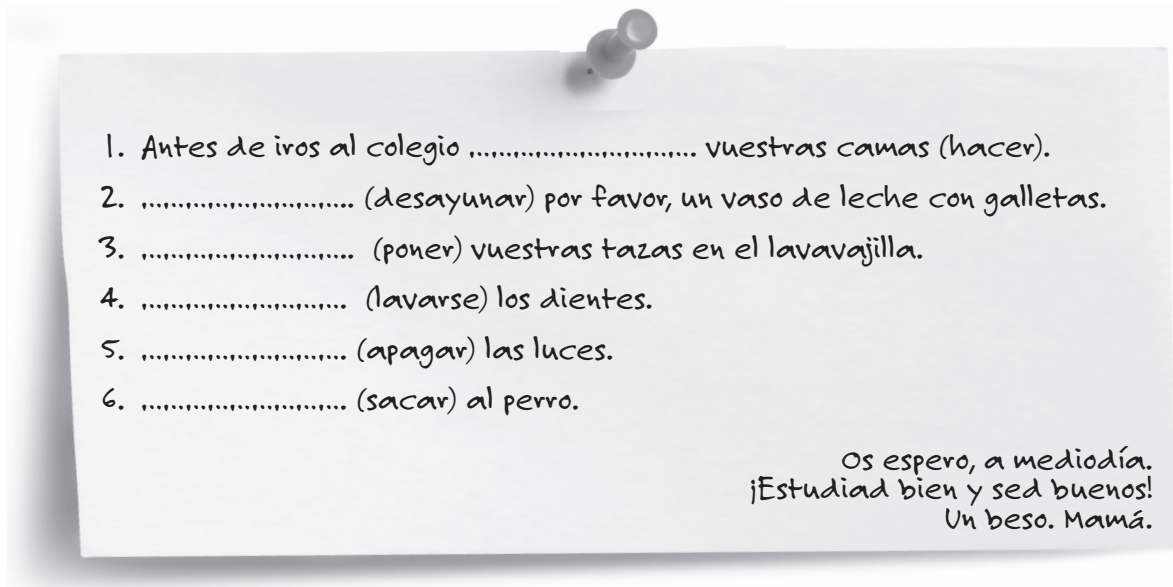 1. Antes de iros al colegio .............................. vuestras camas (hacer).
2. ............................ (desayunar) por favor, un vaso de leche con galletas.
3. ............................ (poner) vuestras tazas en el lavavajilla.
4. ........................... (lavarse) los dientes.
5. ........................... (apagar) las luces.
6. ........................... (sacar) al perro.
Os espero, a mediodía.
¡Estudiad bien y sed buenos!
Un beso. Mamá.